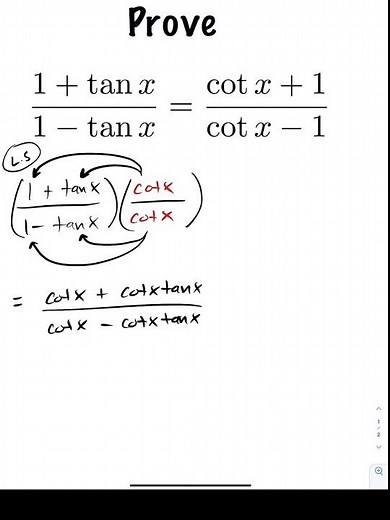 Prove
1 + tan x / 1 − tan x = cot x + 1 / cot x − 1
L.S
(1 + tanx / 1 − tanx)(cotx / cotx)
= cotx + cotxtanx / cotx − cotxtanx
1/2